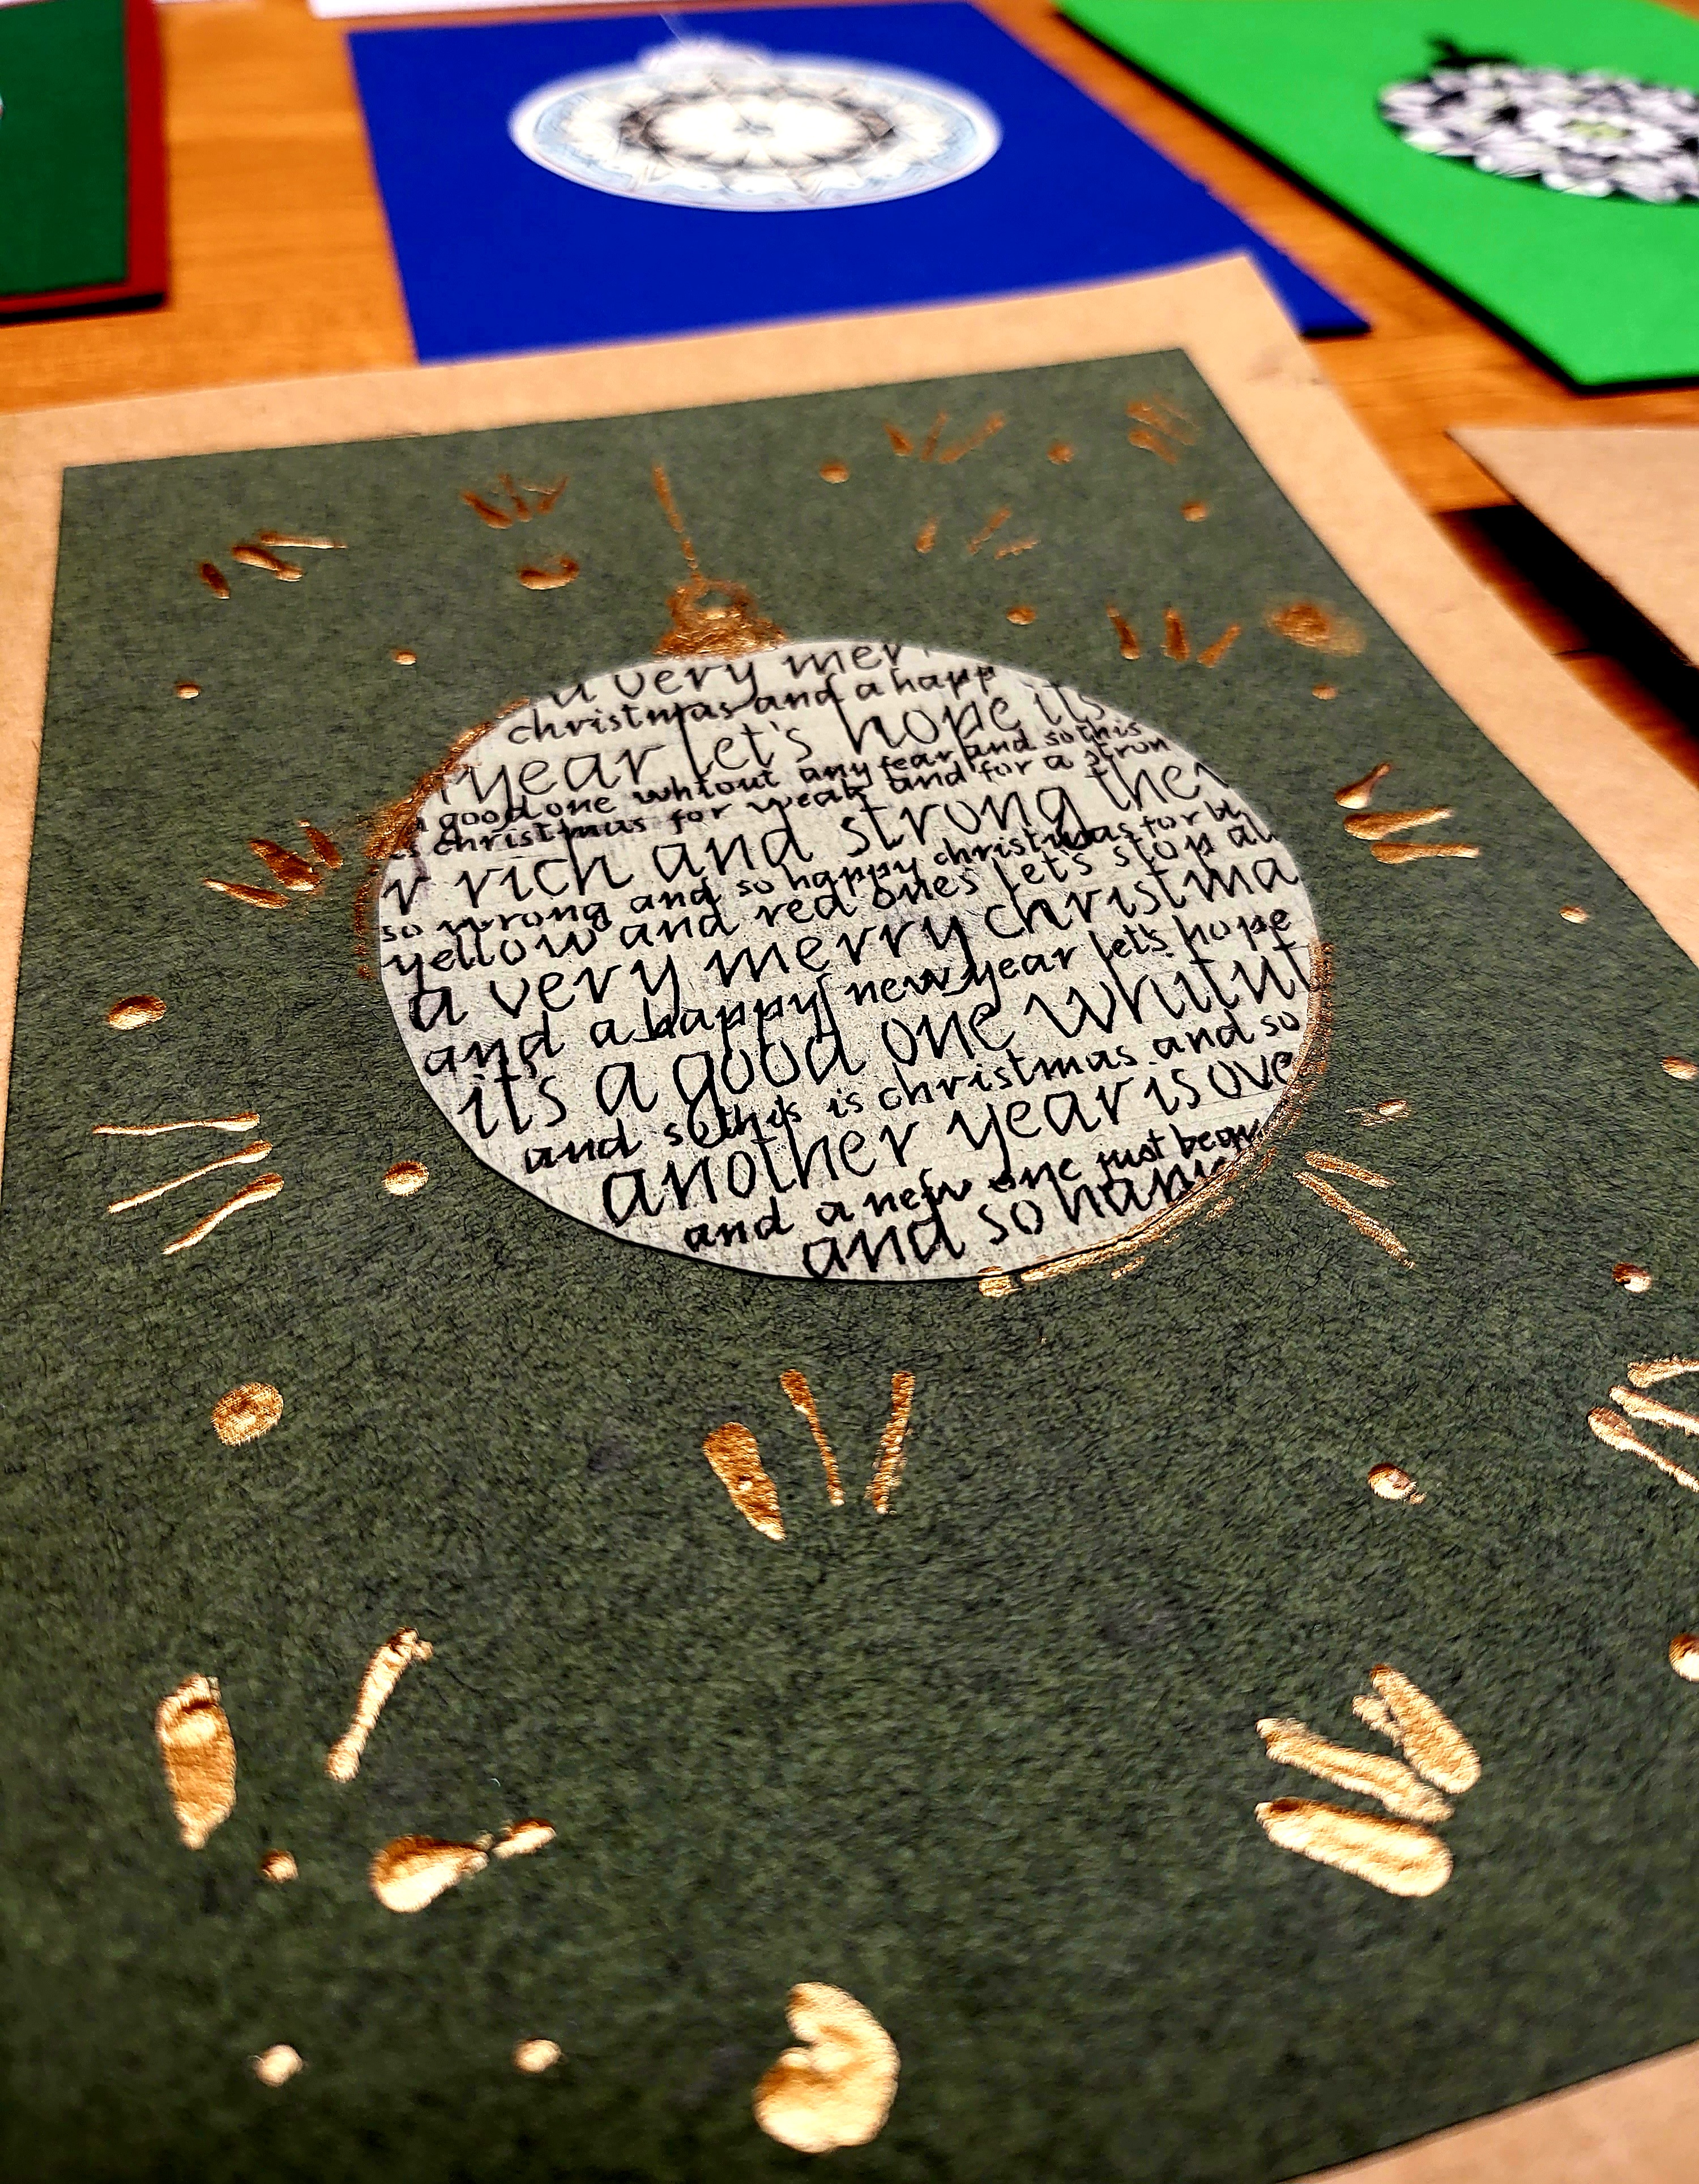 a very mer
christmas and a happ
year let's hope its
a good one whtout any fear and so this
is christmas for weak and for a stron
r rich and strong the r
so wrong and so happy christmas for bl
yellow and red ones let's stop al
a very merry christma
and a happy new year let's hope
its a good one whitut
and so this is christmas and so
another year is ove
and a new one just begun
and so